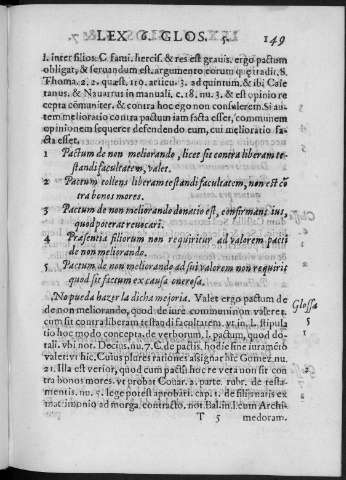 LEX 6. GLOS. 5. 149
l. inter filios. C. fami. hercis. & res est grauis. ergo pactum
obligat, & seruandum est. argumento eorum quę tradit. S.
Thoma. 2. 2. quæst. 110. articu. 3. ad quintum, & ibi Caie
tanus, & Nauarrus in manuali. c. 18. nu. 3. & est opinio re
cepta cōmuniter. & contra hoc ego non consulerem. Si au-
tem melioratio contra pactum iam facta esset, communem
opinionem sequerer defendendo eum, cui melioratio fa-
cta esset.
1 Pactum de non meliorando, licet sit contra liberam te-
standi facultatem, valet.
2 Pactum tollens liberam testandi facultatem, non est cō
tra bonos mores.
3 Pactum de non meliorando donatio est, confirmant ius,
quod poterat reuocari.
4 Præsentia filiorum non requiritur ad valorem pacti
de non meliorando.
5 Pactum de non meliorando ad sui valorem non requirit
quod sit factum ex causa onerosa.
No pueda hazer la dicha mejoria. Valet ergo pactum de
de non meliorando, quod de iure communi non valeret.
cum sit contra liberam testandi facultatem. vt. in l. stipula
tio hoc modo concepta. de verborum. l. pactum, quod do-
tali. vbi not. Decius. nu. 7. C. de pactis. hodie sine iuramēto
valet: vt hic. Cuius plures rationes assignat hic Gomez. nu.
21. Illa est verior, quod cum pactū hoc re vera non sit con
tra bonos mores. vt probat Couar. 2. parte. rubr. de testa-
mentis. nu. 5. lege potest aprobari. cap. 1. de filijs natis ex
matrimonio ad morga. contracto. not. Bal. in l. cum Archi-
Glossa
5
T 5 medoram.